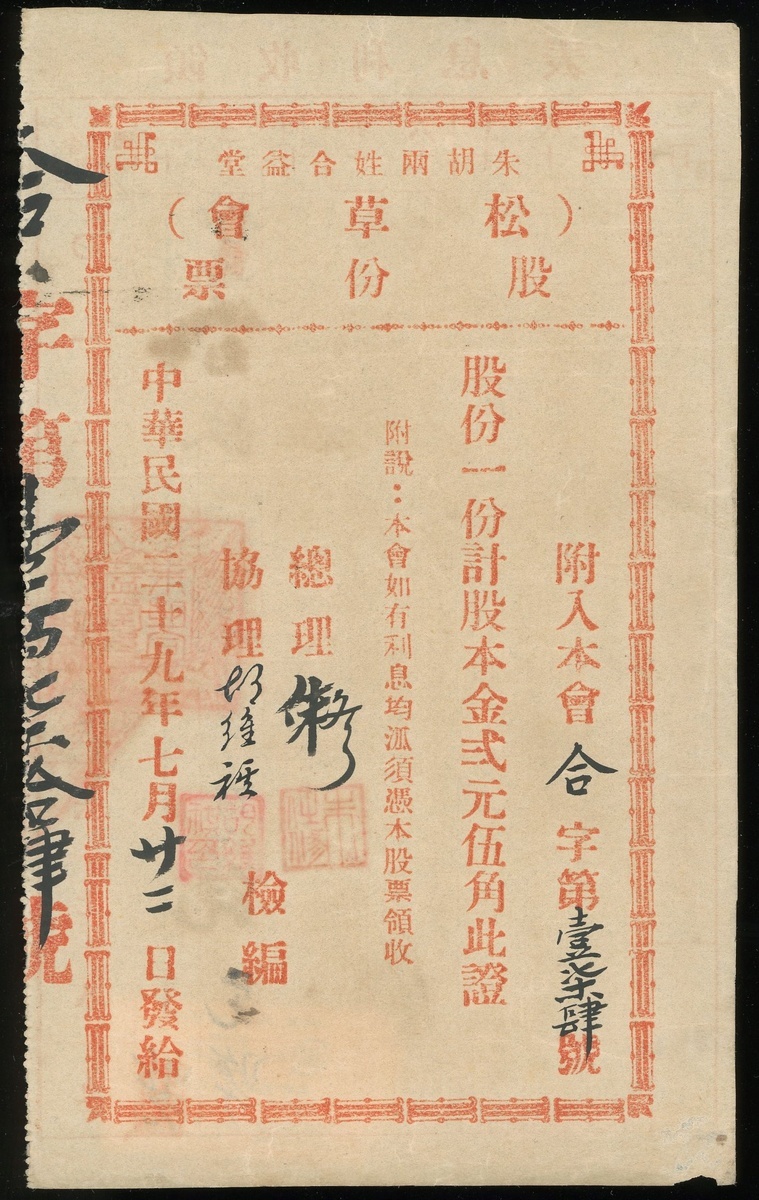 朱胡兩姓合益堂
（松草會）
股份票
附入本會合字第壹柒肆號
股份一份計股本金弍元伍角此證
附說：本會如有利息均派須憑本股票領收
總理 朱
協理 胡維
檢編
中華民國二十九年七月廿二日發給
合字第壹百七拾肆號
表息利收領